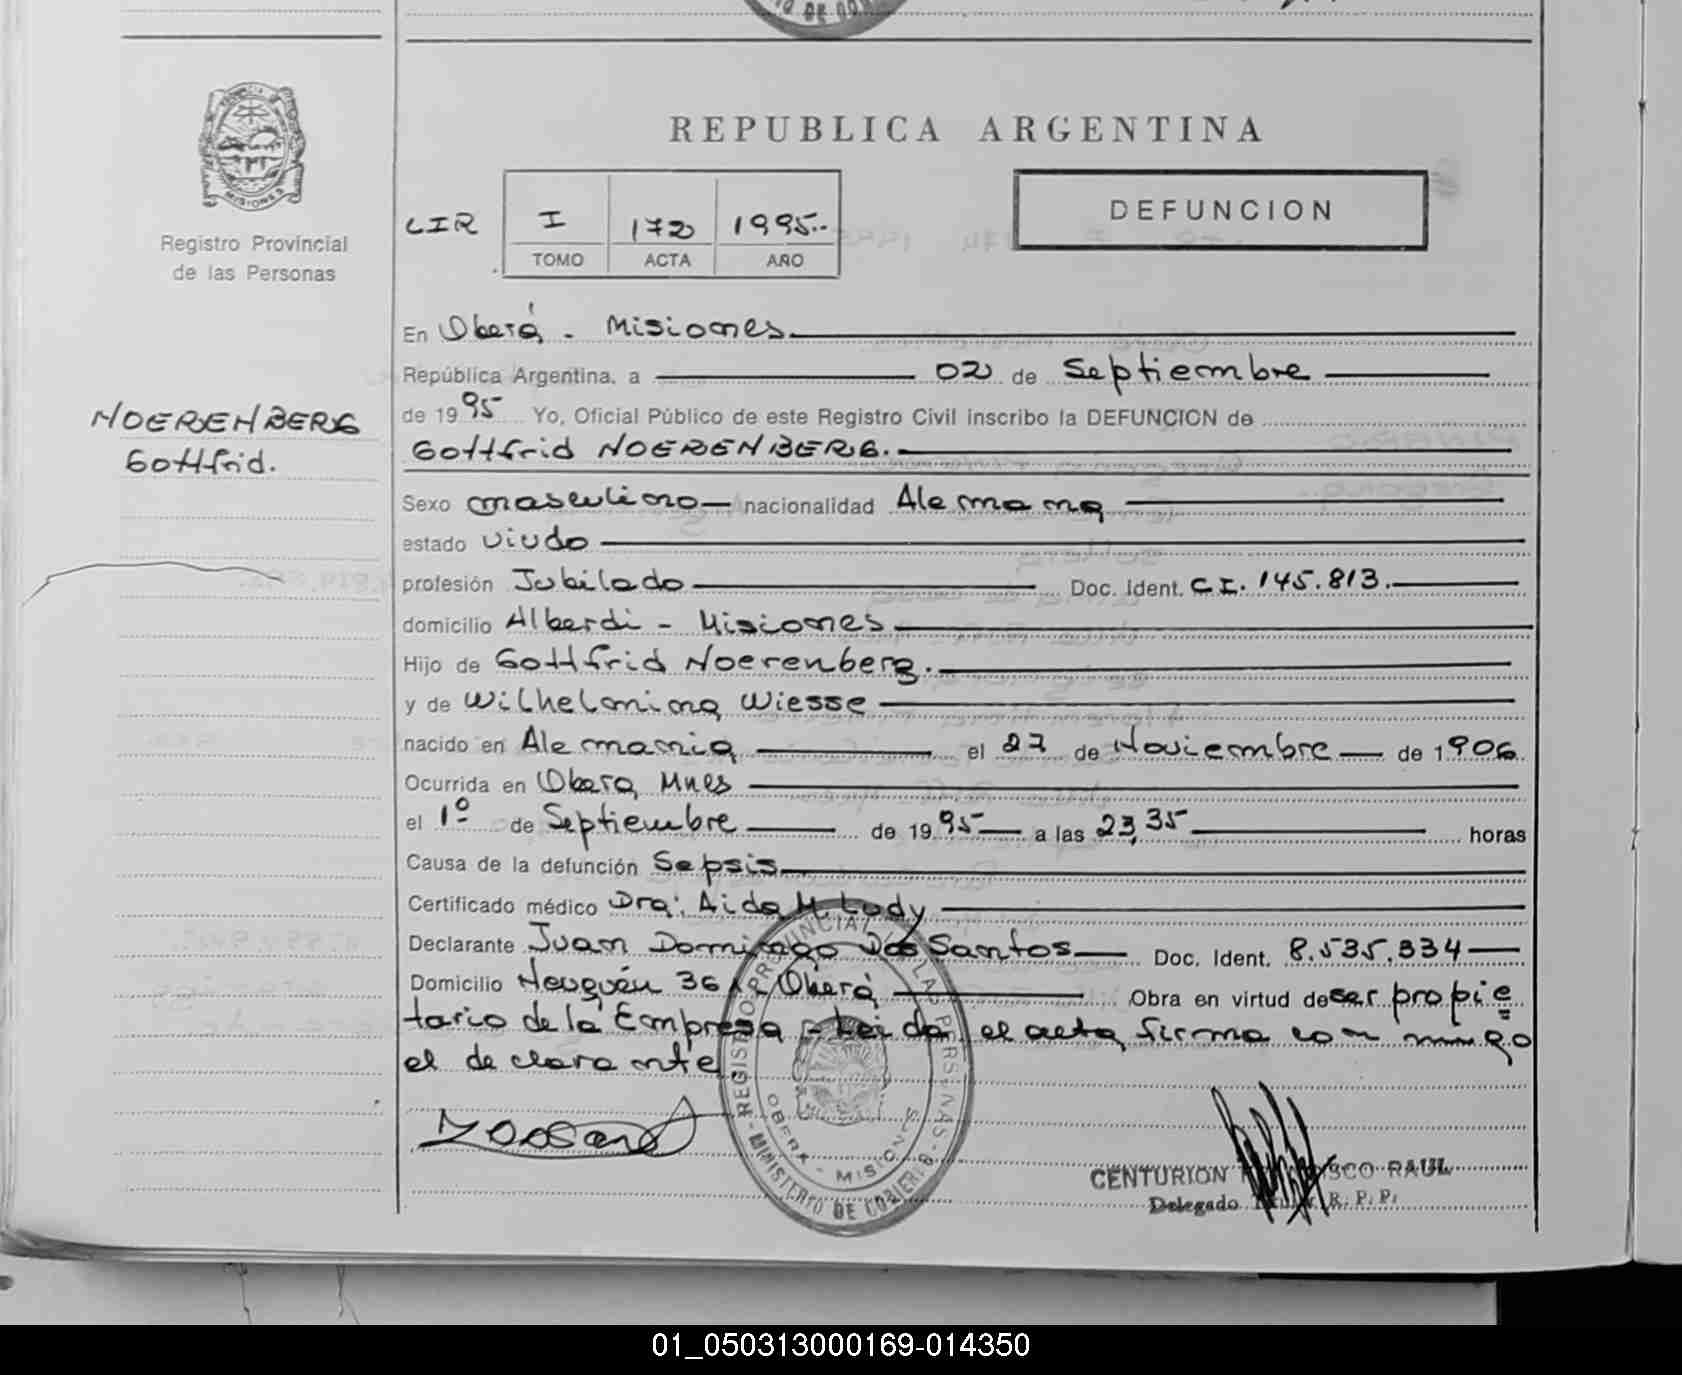 REPUBLICA ARGENTINA
MISIONES
Registro Provincial
de las Personas
CIR
I 172 1995..
TOMO ACTA AÑO
DEFUNCION
En Oberá - Misiones
República Argentina, a 02 de Septiembre
de 1995 Yo, Oficial Público de este Registro Civil inscribo la DEFUNCION de
NOERENBERG
Gottfrid.
Gottfrid NOERENBERG.
Sexo masculino nacionalidad Alemana
estado viudo
profesión Jubilado Doc. Ident. C.I. 145.813.
domicilio Alberdi - Misiones
Hijo de Gottfrid Noerenberg.
y de Wilhelmina Wiesse
nacido en Alemania el 27 de Noviembre de 1906
Ocurrida en Obera, Mnes
el 1º de Septiembre de 1995 a las 23,35 horas
Causa de la defunción Sepsis
Certificado médico Dra: Aida M. Lody
Declarante Juan Domingo Dos Santos Doc. Ident. 8.535.334
Domicilio Neuquén Oberá Obra en virtud de ser propie
tario de la Empresa - Leida el acta, firma con migo
el declarante.
REGISTRO PROVINCIAL LAS PERSONAS
OBERA - MISIONES
- MINISTERIO DE GOBIERNO -
CENTURION RAUL
Delegado R. P. P.
01_050313000169-014350